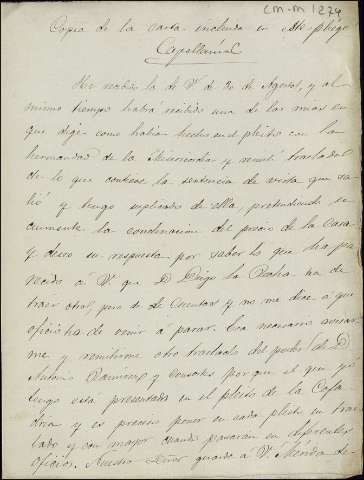 CM-M 1279
Copia de la carta incluida en este pliego
Capellanias
He recibido la de V. de 20 de Agosto, y al
mismo tiempo habrá recibido una de las mias en
que dije como habia hecho en el pleito con la
hermandad de la Misericordia y remití traslado
de lo que contiene la sentencia de vista que sa-
lió y tengo suplicado de ella, pretendiendo se
aumente la condenacion del precio de la Casa
y deseo su respuesta por saber lo que ha pa-
recido á V. que D Diego la Rocha ha de
traer otro, pero de de Cuentas y no me dice á que
oficio ha de venir á parar. Era necesario avisar-
me y remitirme otro traslado del poder de D
Antonio Ramirez y consortes por que el que yo
tengo está presentado en el pleito de la Cofa
dria y es preciso poner en cada pleito un tras
lado y con mayor cuando pasaran en diferentes
oficios. Nuestro Señor guarde á V. Mérida de-